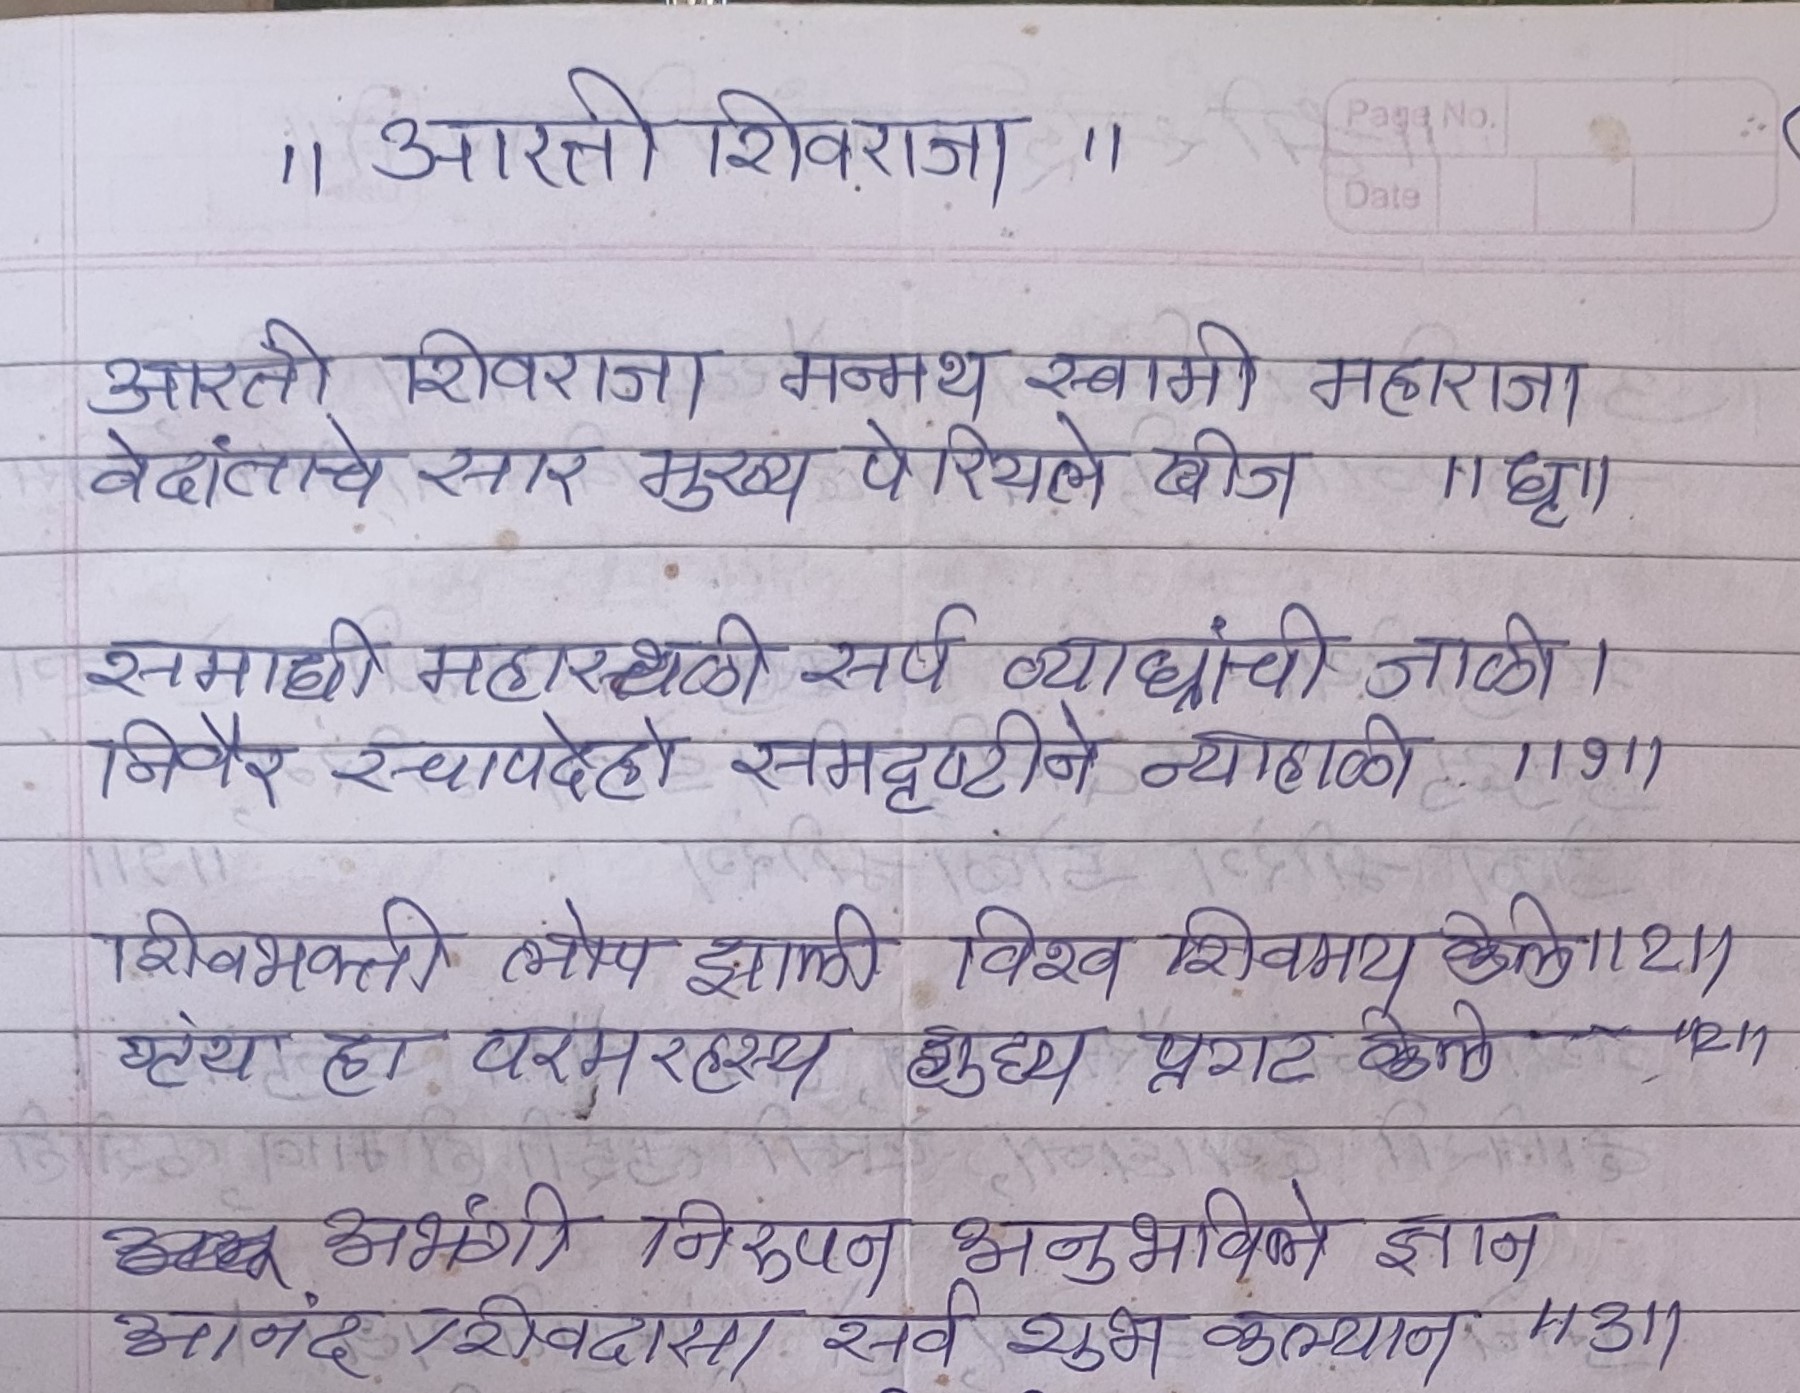 ॥ आरती शिवराजा ॥
Page No.
Date
आरती शिवराजा मन्मथ स्वामी महाराजा
वेदांताचे सार मुख्य पेरियले बीज ॥धृ॥
समाधी महास्थळी सर्प व्याघ्रांची जाळी ।
निर्वैर स्वापदेही समदृष्टीने न्याहाळी ॥१॥
शिवभक्ती लोप झाली विश्व शिवमय केले॥2॥
ग्रंथ हा परमरहस्य शुध्य प्रगट केले ॥2॥
अभंगी निरुपन अनुभविले ज्ञान
आनंद शिवदासा सर्व शुभ कल्यान ॥3॥